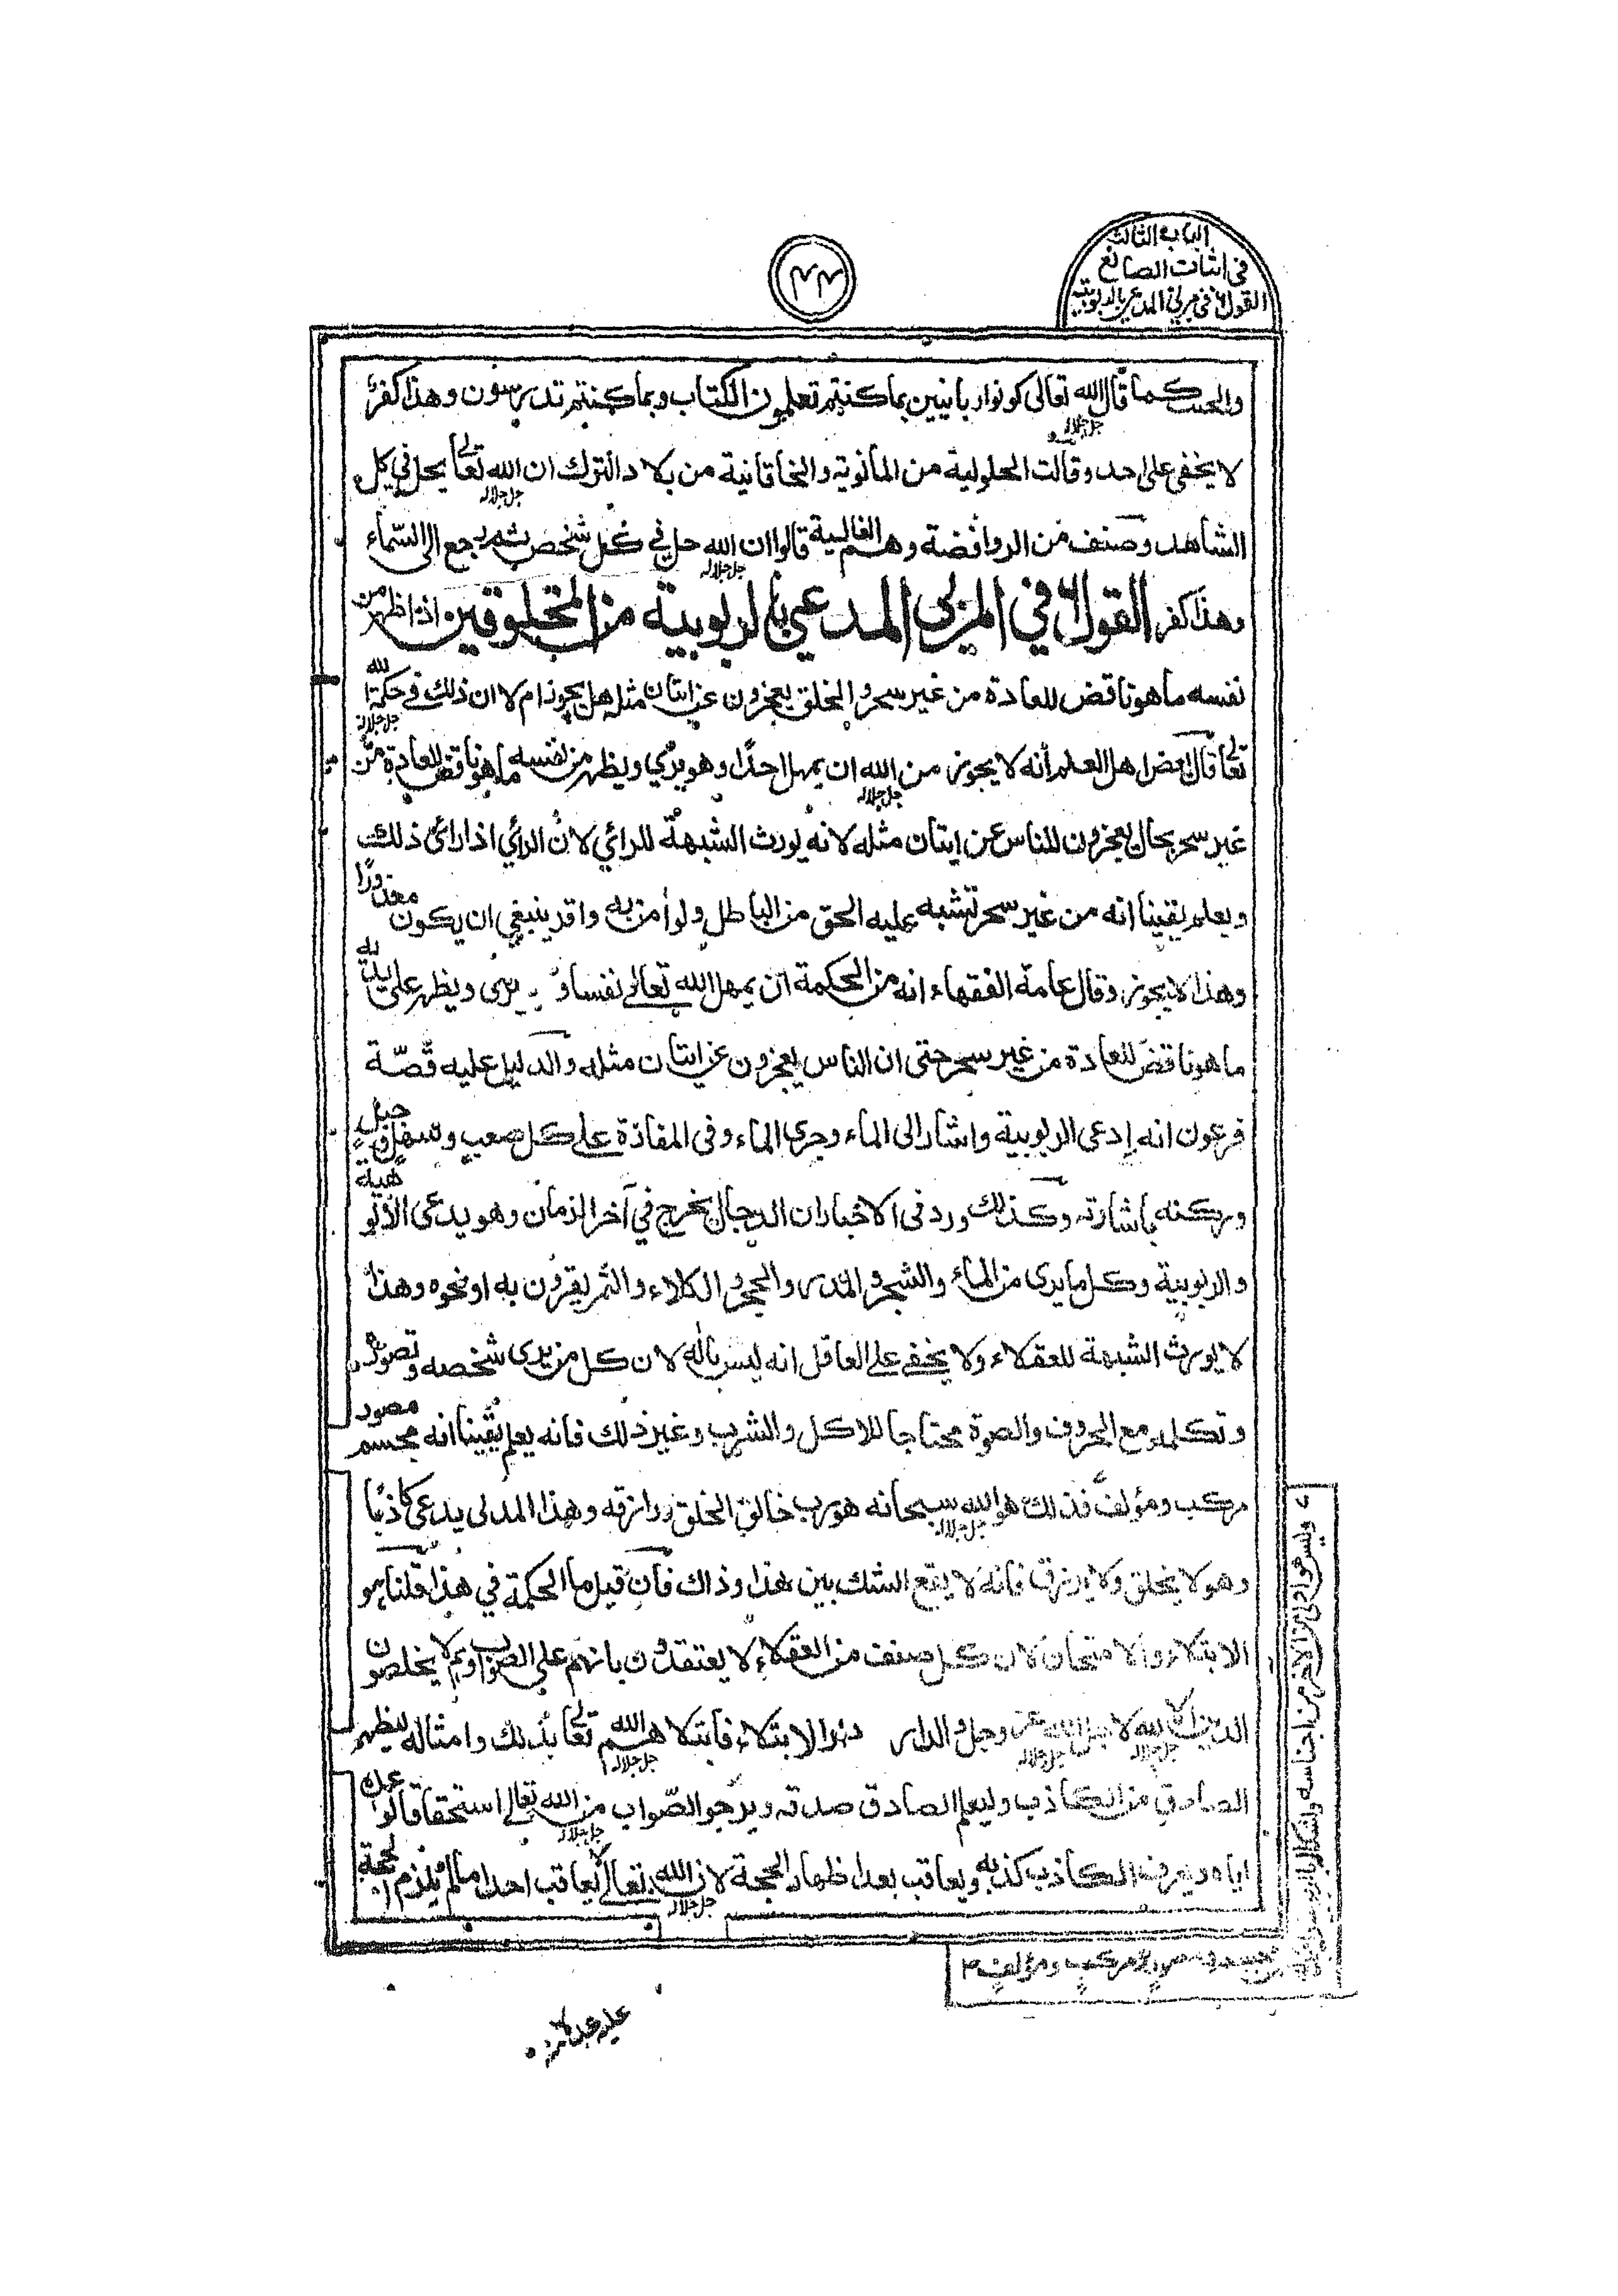 الباب الثالث
في اثبات الصانع
القول في مرئي المدعي بالربوبية
٢٢
والحب كما قال الله تعالى كونوا ربانيين بما كنتم تعلمون الكتاب وبما كنتم تدرسون وهذا كفر
جل جلاله
لا يخفى على احد وقالت الحلولية من المانوية والخاقانية من بلاد الترك ان الله تعالى يحل في كل
جل جلاله
الشاهد وصنف من الروافضة وهم الغالية قالوا ان الله حل في كل شخص ثم يرجع الى السماء
جل جلاله
وهذا كفر القول في المرئي المدعي بالربوبية من المخلوقين اذا ظهر من
نفسه ما هو ناقض للعادة من غير سحر والخلق يعجزون عن اتيان مثله هل يجوز ام لا ان ذلك في حكمة الله
جل جلاله
تعالى قال بعض اهل العلم انه لا يجوز من الله ان يمهل احدا وهو يرى ويظهر من نفسه ما هو ناقض للعادة من
جل جلاله
غير سحر بحال يعجزون للناس عن ايتان مثله لانه يورث الشبهة للرائي لان الرائي اذا رائ ذلك
ويعلم يقينا انه من غير سحر تشبه عليه الحق من الباطل ولو امن به واقر ينبغي ان يكون معذورا
وهذا لا يجوز وقال عامة الفقهاء انه من الحكمة ان يمهل الله تعالى نفسا و يرى ويظهر على يديه
ما هو ناقض للعادة من غير سحر حتى ان الناس يعجزون عن اتيان مثله والدليل عليه قصة
فرعون انه إدعى الربوبية واشار الى الماء وجرى الماء وفى المفازة على كل صعب وسهل وجبل
وركنه باشارته وكذلك ورد فى الاخبار ان الدجال يخرج في آخر الزمان وهو يدعى الألوهية
والربوبية وكل ما يرى من الماء والشجر والمدر والحجر والكلاء والثمر يقرون به او نحوه وهذا
لا يورث الشبهة للعقلاء ولا يخفى على العاقل انه ليس باله لان كل من يرى شخصه وتصوره
وتكلمه مع الحروف والصوة محتاجا للاكل والشرب وغير ذلك فانه يعلم يقينا انه مجسم مصور
مركب ومؤلف فذلك هو الله سبحانه هو رب خالق الخلق ورازقه وهذا المدلى يدعى كاذبا
جل جلاله
وهو لا يخلق ولا يرزق فانه لا يقع الشك بين هذا وذاك فان قيل ما الحكمة في هذا قلنا هو
الابتلاء والامتحان لان كل صنف من العقلاء لا يعتقدون بانهم على الصواب وهم لا يخلصون
الدين الا لله لاجل الله عز وجل والدار دار الابتلاء فابتلاهم الله تعالى بذلك وامثاله ليظهر
جل جلاله جل جلاله جل جلاله
الصادق من الكاذب وليعلم الصادق صدقه ويرجو الصواب من الله تعالى استحقاقا لوعده
جل جلاله
اياه ويعرف الكاذب كذبه ويعاقب بعد اظهار الحجة لان الله تعالى لا يعاقب احدا ما لم يلزم الحجة
جل جلاله
وليس هو اولى من الاخر من اجناسه واشكاله
مركب ومؤلف ٢
عليه